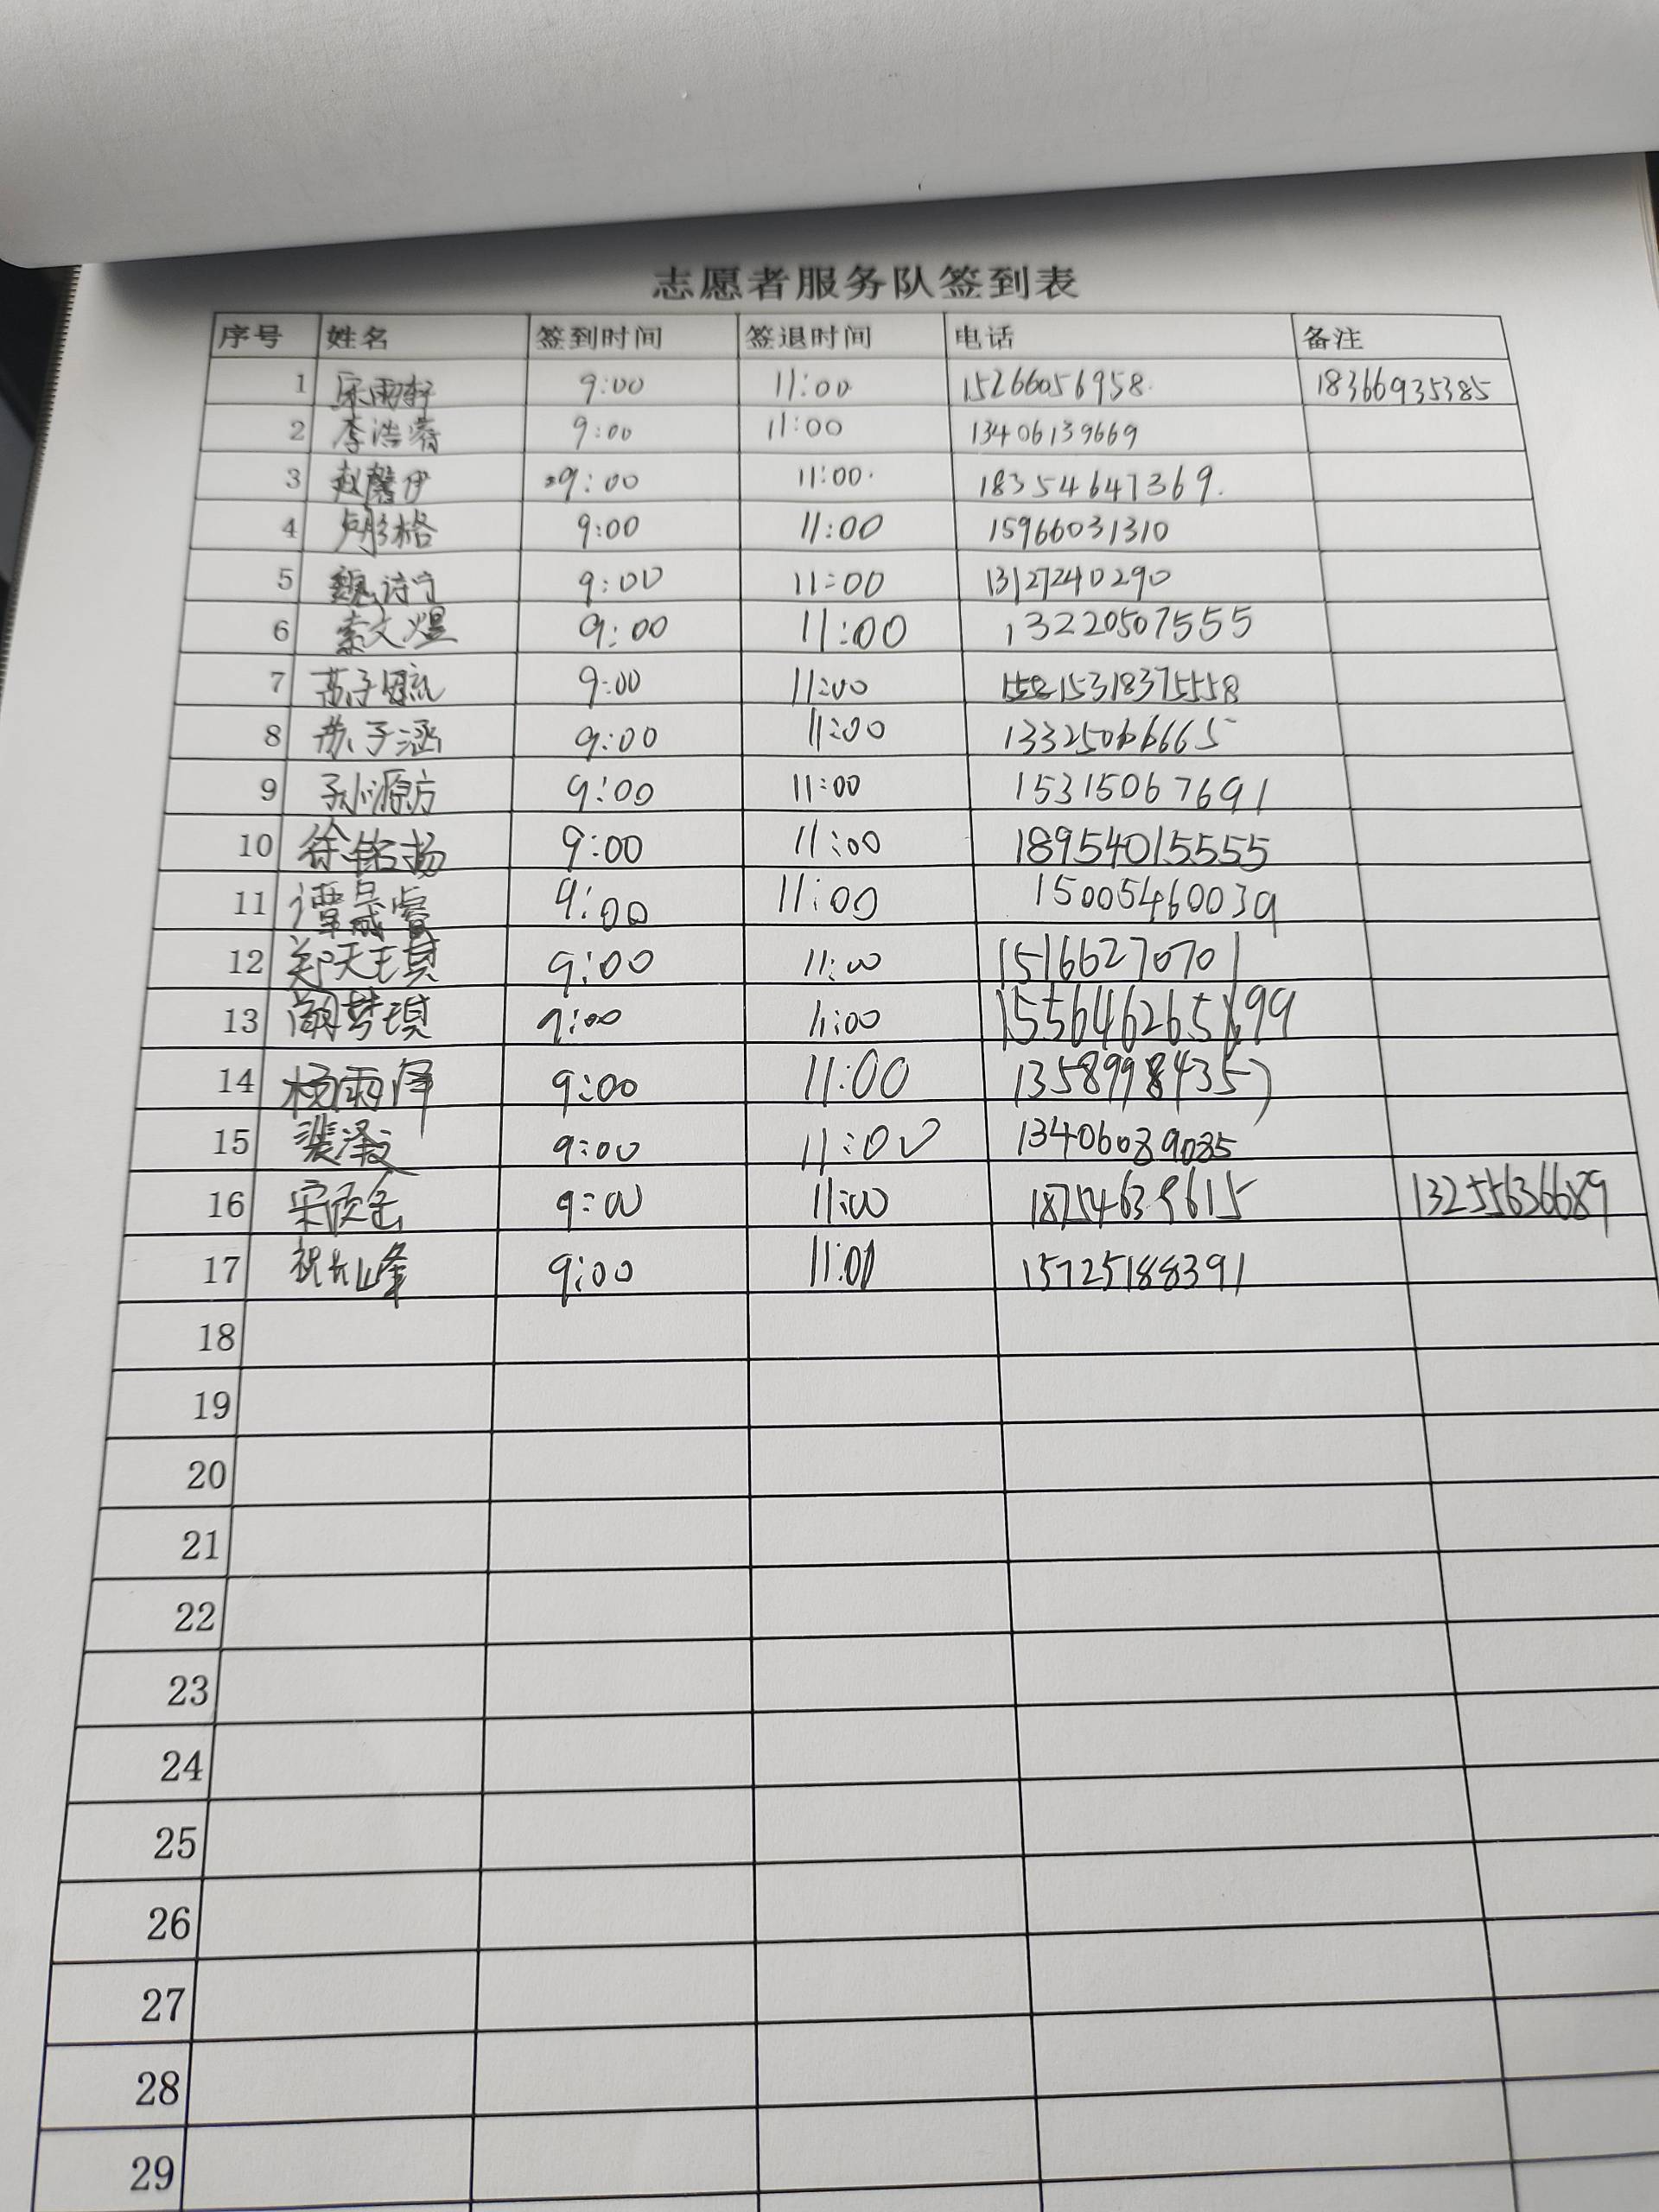 志愿者服务队签到表
序号 姓名 签到时间 签退时间 电话 备注
1 宋雨轩 9:00 11:00 15266056958 18366935385
2 李浩 9:00 11:00 13406139669
3 赵馨伊 9:00 11:00 18354647369
4 格 9:00 11:00 15966031310
5 魏诗宁 9:00 11:00 13127240290
6 索文煜 9:00 11:00 13220507555
7 9:00 11:00 15318375558
8 苏子涵 9:00 11:00 13325066665
9 孙源方 9:00 11:00 15315067691
10 徐铭扬 9:00 11:00 18954015555
11 谭晟睿 9:00 11:00 15005460039
12 郑天琪 9:00 11:00 15166270701
13 梦琪 9:00 11:00
14 杨雨泽 9:00 11:00 13589984357
15 裴泽文 9:00 11:00 13406089085
16 宋欣 9:00 11:00 18754639615 13255636689
17 祝大峰 9:00 11:00 15725188391
18
19
20
21
22
23
24
25
26
27
28
29